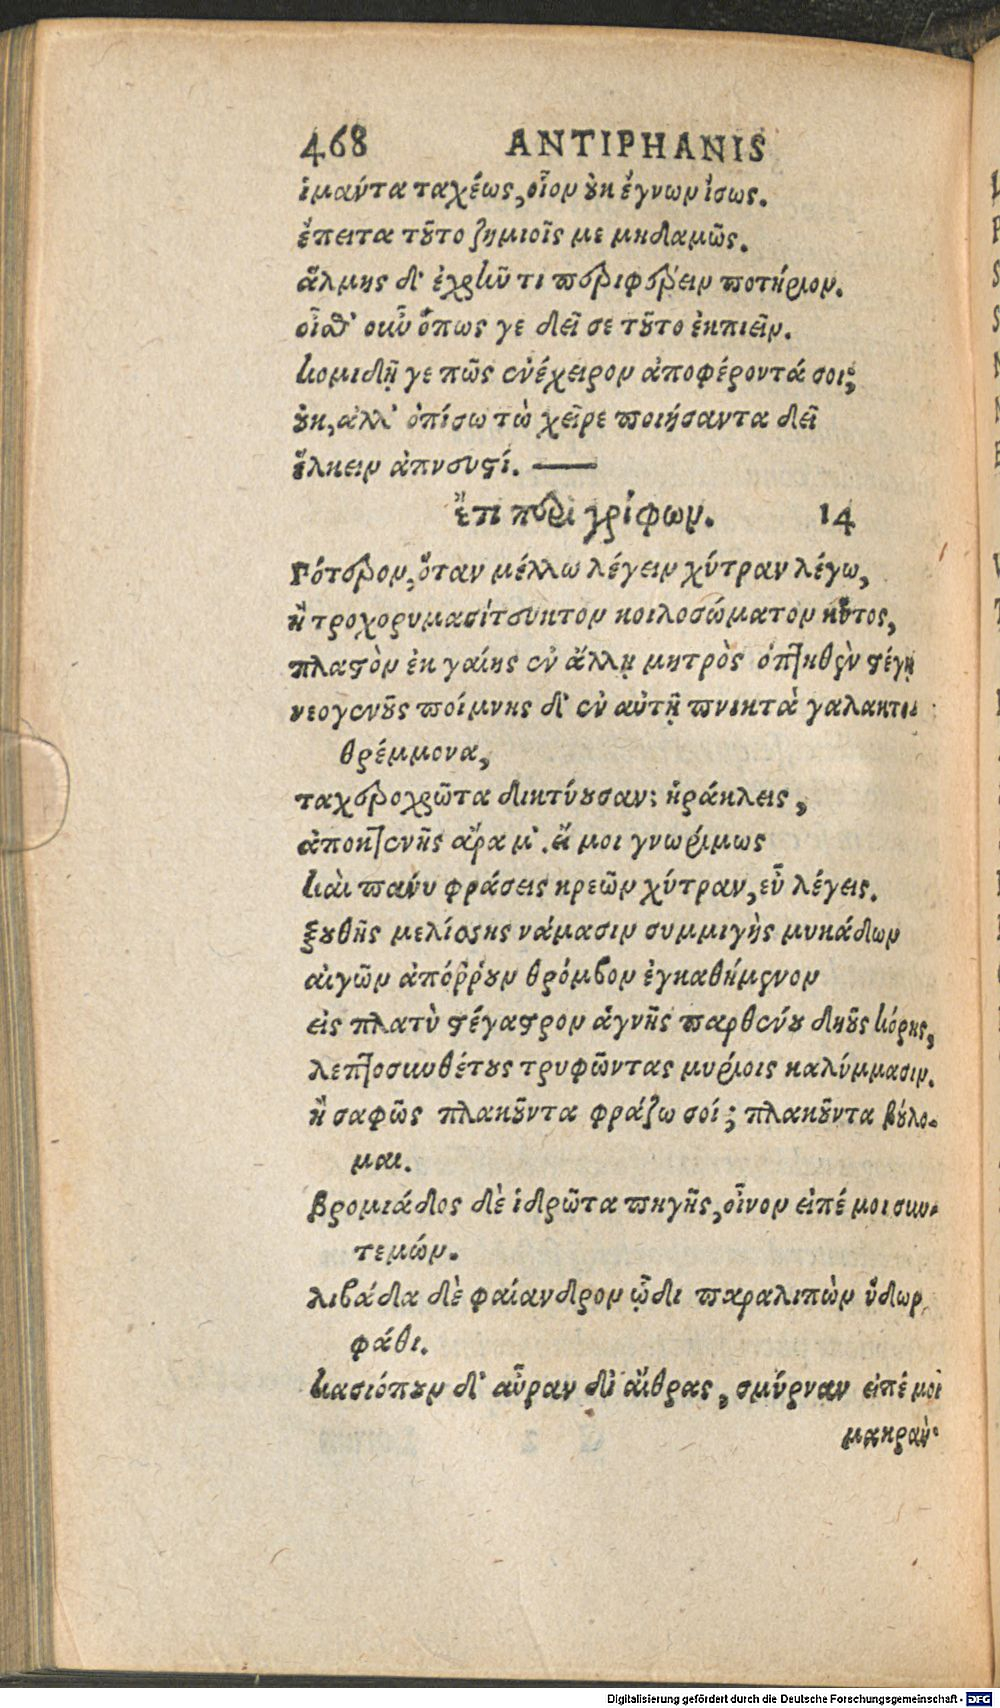 468 ANTIPHANIS
ἱμάντα ταχέως, οἷον οὐκ ἔγνων ἴσως.
ἔπειτα τοῦτο ζημιοῖς με μηδαμῶς.
ἅλμης δ' ἐχρῆν τι περιφέρειν ποτήριον.
οἶσθ' οὖν ὅπως γε δεῖ σε τοῦτο ἐκπιεῖν.
κομιδῇ γε πῶς ἐνέχειρον ἀποφέροντά σοι;
οὐκ, ἀλλ' ὀπίσω τὼ χεῖρε ποιήσαντα δεῖ
ἕλκειν ἀπνευστί. —
ἔτι περὶ γρίφων. 14
Πότερον, ὅταν μέλλω λέγειν χύτραν λέγω,
ἢ τροχορυμασίτευκτον κοιλοσώματον κύτος,
πλαστὸν ἐκ γαίης ἐν ἄλλῃ μητρὸς ὀπτηθὲν στέγῃ
νεογενοῦς ποίμνης δ' ἐν αὐτῇ πνικτὰ γαλακτο
θρέμμονα,
ταχεροχρῶτα δικτύουσαν; ἡράκλεις,
ἀποκτενῆς ἄρα μ'. εἴ μοι γνωρίμως
καὶ πάνυ φράσεις κρεῶν χύτραν, εὖ λέγεις.
ξουθῆς μελίσσης νάμασιν συμμιγὴς μυκάδων
αἰγῶν ἀπόῤῥουν θρόμβον ἐγκαθήμενον
εἰς πλατὺ στέγαστρον ἁγνῆς παρθένου δηοῦς κόρης,
λεπτοσυνθέτους τρυφῶντας μυρίοις καλύμμασιν.
ἢ σαφῶς πλακοῦντα φράζω σοί; πλακοῦντα βούλο-
μαι.
βρομιάδος δὲ ἱδρῶτα πηγῆς, οἶνον εἰπέ μοι συν-
τεμών.
λιβάδα δὲ φαίανδρον ᾧδι παραλιπὼν ὕδωρ
φάθι.
κασιόπουν δ' αὖραν δι' αἴθρας, σμύρναν εἰπέ μοι
μακρὰν
Digitalisierung gefördert durch die Deutsche Forschungsgemeinschaft - DFG